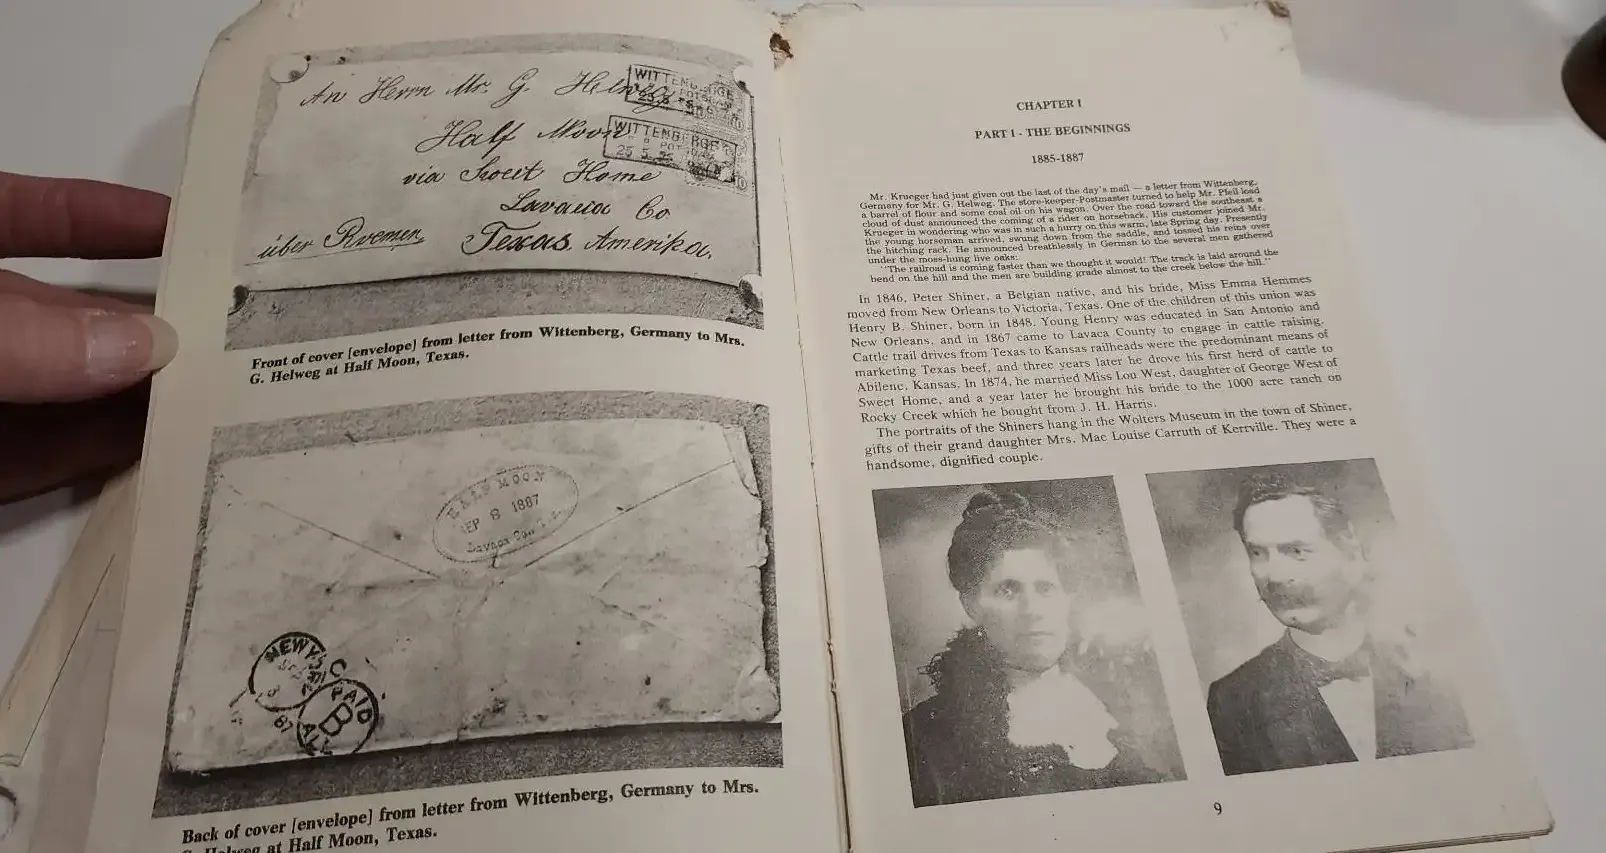 An Herrn Mr. G. Helweg
Half Moon
via Sweit Home
Lavaca Co
über Bremen, Texas. Amerika.
WITTENBERGE
WITTENBERGE
25 5
Front of cover [envelope] from letter from Wittenberg, Germany to Mrs.
G. Helweg at Half Moon, Texas.
HALF MOON
SEP 8 1887
Lavaca Co.,
NEW Y
87
PAID
B
ALL
Back of cover [envelope] from letter from Wittenberg, Germany to Mrs.
G. Helweg at Half Moon, Texas.
CHAPTER I
PART I - THE BEGINNINGS
1885-1887
Mr. Krueger had just given out the last of the day's mail — a letter from Wittenberg,
Germany for Mr. G. Helweg. The store-keeper-Postmaster turned to help Mr. Pfeil load
a barrel of flour and some coal oil on his wagon. Over the road toward the southeast a
cloud of dust announced the coming of a rider on horseback. His customer joined Mr.
Krueger in wondering who was in such a hurry on this warm, late Spring day. Presently
the young horseman arrived, swung down from the saddle, and tossed his reins over
the hitching rack. He announced breathlessly in German to the several men gathered
under the moss-hung live oaks:
"The railroad is coming faster than we thought it would! The track is laid around the
bend on the hill and the men are building grade almost to the creek below the hill."
In 1846, Peter Shiner, a Belgian native, and his bride, Miss Emma Hemmes
moved from New Orleans to Victoria, Texas. One of the children of this union was
Henry B. Shiner, born in 1848. Young Henry was educated in San Antonio and
New Orleans, and in 1867 came to Lavaca County to engage in cattle raising.
Cattle trail drives from Texas to Kansas railheads were the predominant means of
marketing Texas beef, and three years later he drove his first herd of cattle to
Abilene, Kansas. In 1874, he married Miss Lou West, daughter of George West of
Sweet Home, and a year later he brought his bride to the 1000 acre ranch on
Rocky Creek which he bought from J. H. Harris.
The portraits of the Shiners hang in the Wolters Museum in the town of Shiner,
gifts of their grand daughter Mrs. Mae Louise Carruth of Kerrville. They were a
handsome, dignified couple.
9